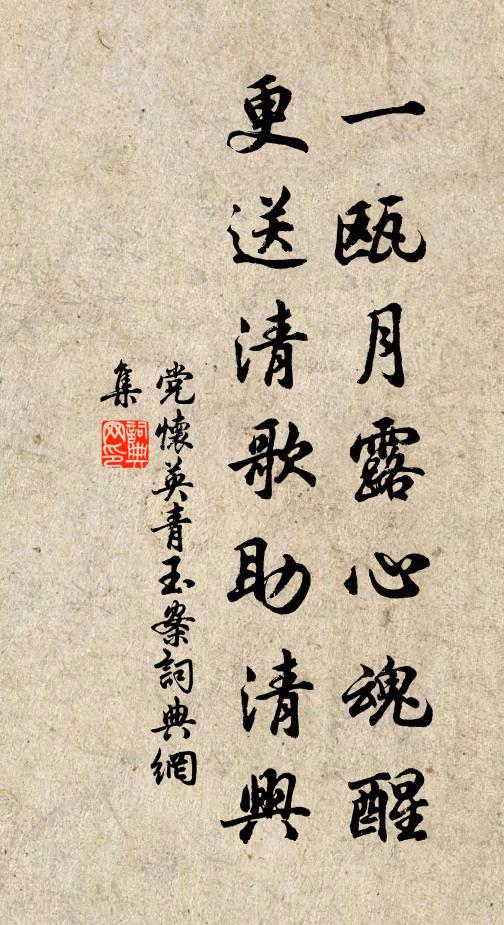 一瓯月露心魂醒
更送清歌助清興
党懷英青玉案詞典網
集
詞典网印